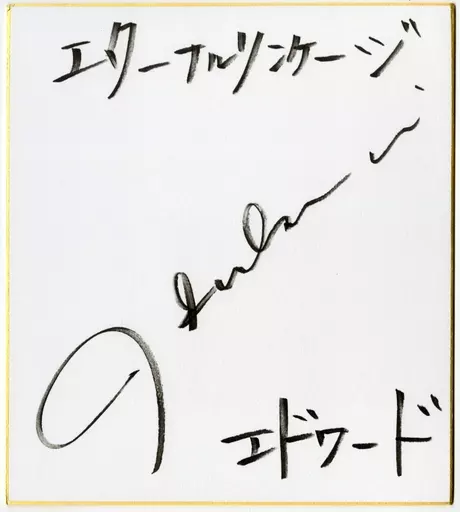 エターナルリンケージ
エドワード